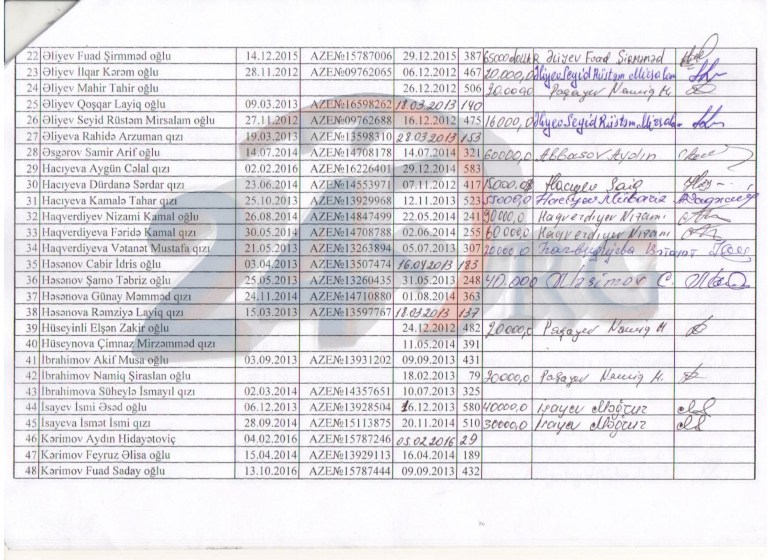 22 Əliyev Fuad Şirmməd oğlu 14.12.2015 AZE№15787006 29.12.2015 387 65000 Əliyev Fuad Şirmməd
23 Əliyev İlqar Kərəm oğlu 28.11.2012 AZE№09762065 06.12.2012 467 20.000,0 Əliyev Seyid Rüstəm Mirsalam
24 Əliyev Mahir Tahir oğlu 26.12.2012 506 20.000 Paşayev Namiq M.
25 Əliyev Qoşqar Layiq oğlu 09.03.2013 AZE№16598262 18.03.2013 140
26 Əliyev Seyid Rüstəm Mirsalam oğlu 27.11.2012 AZE№09762688 16.12.2012 475 16000,0 Əliyev Seyid Rüstəm Mirsalam
27 Əliyeva Rahidə Arzuman qızı 19.03.2013 AZE№13598310 28.03.2013 153
28 Əsgərov Samir Arif oğlu 14.07.2014 AZE№14708178 14.07.2014 321 60000,0 Abbasov Aydın
29 Hacıyeva Aygün Cəlal qızı 02.02.2016 AZE№16226401 29.12.2014 583
30 Hacıyeva Dürdanə Sərdar qızı 23.06.2014 AZE№14553971 07.11.2012 417 15000.0 Hacıyev Saiq
31 Hacıyeva Kamalə Tahar qızı 25.10.2013 AZE№13929968 12.11.2013 523 55000,0 Hacıyev Mübariz
32 Haqverdiyev Nizami Kamal oğlu 26.08.2014 AZE№14847499 22.05.2014 241 90000,0 Haqverdiyev Nizami
33 Haqverdiyeva Fəridə Kamal qızı 30.05.2014 AZE№14708788 02.06.2014 255 60 000,0 Haqverdiyev Nizami
34 Haqverdiyeva Vətanət Mustafa qızı 21.05.2013 AZE№13263894 05.07.2013 307 20000,0
35 Həsənov Cabir İdris oğlu 03.04.2013 AZE№13507474 16.04.2013 183
36 Həsənov Şamo Təbriz oğlu 25.05.2013 AZE№13260435 31.05.2013 248 40.000 Nasimov C.
37 Həsənova Günay Məmməd qızı 24.11.2014 AZE№14710880 01.08.2014 363
38 Həsənova Rəmziyə Layiq oğlu 15.03.2013 AZE№13597767 18.03.2013 137
39 Hüseyinli Elşən Zakir oğlu 24.12.2012 482 20000,0 Paşayev Namiq M
40 Hüseynova Çimnaz Mirzəmməd qızı 11.05.2014 391
41 İbrahimov Akif Musa oğlu 03.09.2013 AZE№13931202 09.09.2013 431
42 İbrahimov Namiq Şiraslan oğlu 18.02.2013 79 20000,0 Paşayev Namiq M.
43 İbrahimova Süheylə İsmayıl qızı 02.03.2014 AZE№14357651 10.07.2013 325
44 İsayev İsmi Əsəd oğlu 06.12.2013 AZE№13928504 16.12.2013 580 40000,0 İsayev Moğruz
45 İsayeva İsmət İsmi qızı 28.09.2014 AZE№15113875 20.11.2014 510 30000,0 İsayev Moğruz
46 Kərimov Aydın Hidayətoviç 04.02.2016 AZE№15787246 05.02.2016 29
47 Kərimov Feyruz Əlisa oğlu 15.04.2014 AZE№13929113 16.04.2014 189
48 Kərimov Fuad Saday oğlu 13.10.2016 AZE№15787444 09.09.2013 432